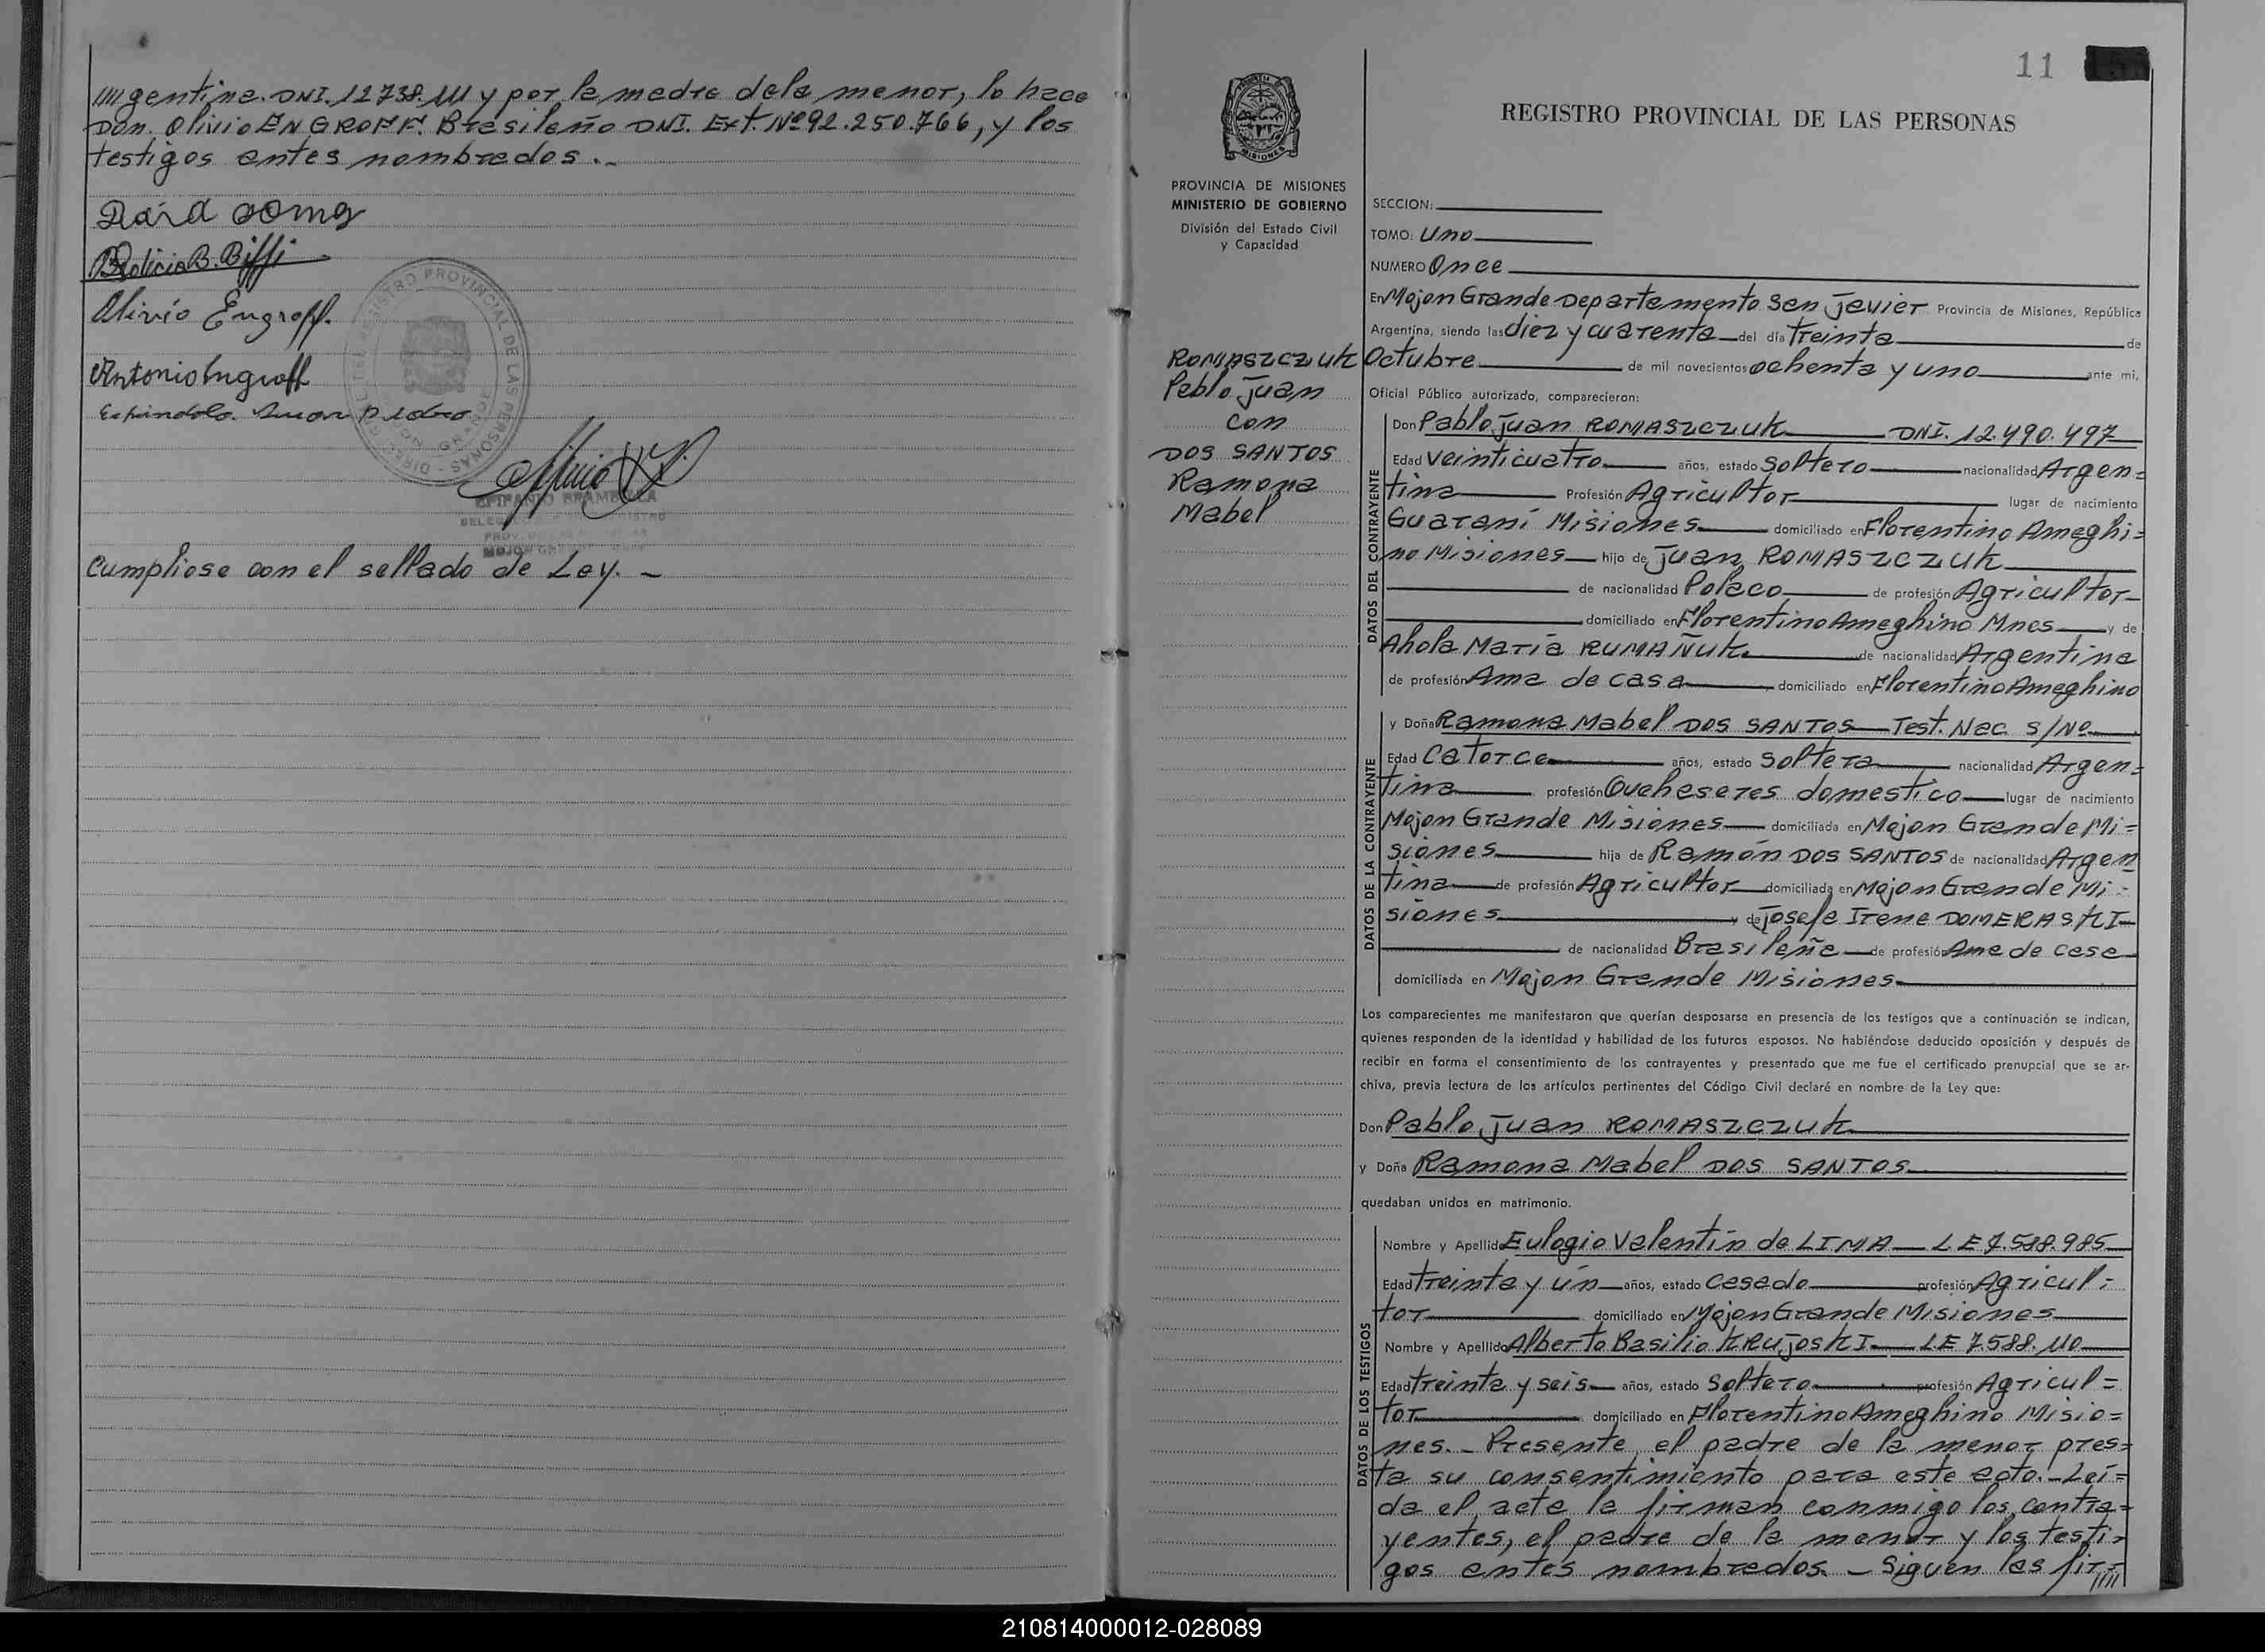 ////gentina. DNI. 12.738.111 y por la madre de la menor, lo hace
Don. Olivio ENGROFF. Brasileño DNI. Ext. Nº 92.250.766, y los
testigos antes nombrados.-
B. Biffi
Olivio Engroff.
Antonio Engroff
Espindola Juan Pedro
REGISTRO PROVINCIAL DE LAS PERSONAS
Cumpliose con el sellado de Ley. -
11
REGISTRO PROVINCIAL DE LAS PERSONAS
MISIONES
PROVINCIA DE MISIONES
MINISTERIO DE GOBIERNO
División del Estado Civil
y Capacidad
ROMASZCZUK
Pablo Juan
con
DOS SANTOS
Ramona
Mabel
SECCION:
TOMO: Uno
NUMERO Once
En Mojon Grande Departamento San Javier Provincia de Misiones, República
Argentina, siendo las diez y cuarenta del día treinta de
Octubre de mil novecientos ochenta y uno ante mi,
Oficial Público autorizado, comparecieron:
DATOS DEL CONTRAYENTE
Don Pablo Juan ROMASZCZUK DNI. 12.490.497
Edad veinticuatro años, estado soltero nacionalidad Argen=
tina Profesión Agricultor lugar de nacimiento
Guaraní Misiones domiciliado en Florentino Ameghi=
no Misiones hijo de Juan ROMASZCZUK
de nacionalidad Polaco de profesión Agricultor
domiciliado en Florentino Ameghino Mnes y de
Ahola María RUMAÑUK de nacionalidad Argentina
de profesión Ama de casa domiciliado en Florentino Ameghino
DATOS DE LA CONTRAYENTE
y Doña Ramona Mabel DOS SANTOS Test. Nac. S/Nº
Edad Catorce años, estado soltera nacionalidad Argen=
tina profesión Quehaseres domestico lugar de nacimiento
Mojon Grande Misiones domiciliada en Mojon Grande Mi=
siones hija de Ramón DOS SANTOS de nacionalidad Argen
tina de profesión Agricultor domiciliada en Mojon Grande Mi=
siones y de Josefa Irene DOMERASKI
de nacionalidad Brasileña de profesión Ama de casa
domiciliada en Mojon Grande Misiones
Los comparecientes me manifestaron que querían desposarse en presencia de los testigos que a continuación se indican,
quienes responden de la identidad y habilidad de los futuros esposos. No habiéndose deducido oposición y después de
recibir en forma el consentimiento de los contrayentes y presentado que me fue el certificado prenupcial que se ar-
chiva, previa lectura de los artículos pertinentes del Código Civil declaré en nombre de la Ley que:
Don Pablo Juan ROMASZCZUK
y Doña Ramona Mabel DOS SANTOS
quedaban unidos en matrimonio.
DATOS DE LOS TESTIGOS
Nombre y Apellido Eulogio Valentín de LIMA LE 7.588.985
Edad treinta y ún años, estado casado profesión Agricul=
tor domiciliado en Mojon Grande Misiones
Nombre y Apellido Alberto Basilio KRUJOSKI LE 7.588.110
Edad treinta y seis años, estado soltero profesión Agricul=
tor domiciliado en Florentino Ameghino Misio=
nes.- Presente el padre de la menor, pres=
ta su consentimiento para este acto.- Leí=
da el acta la firman conmigo los contra=
yentes, el padre de la menor y los testi=
gos antes nombrados.- Siguen las fir=
////
210814000012-028089